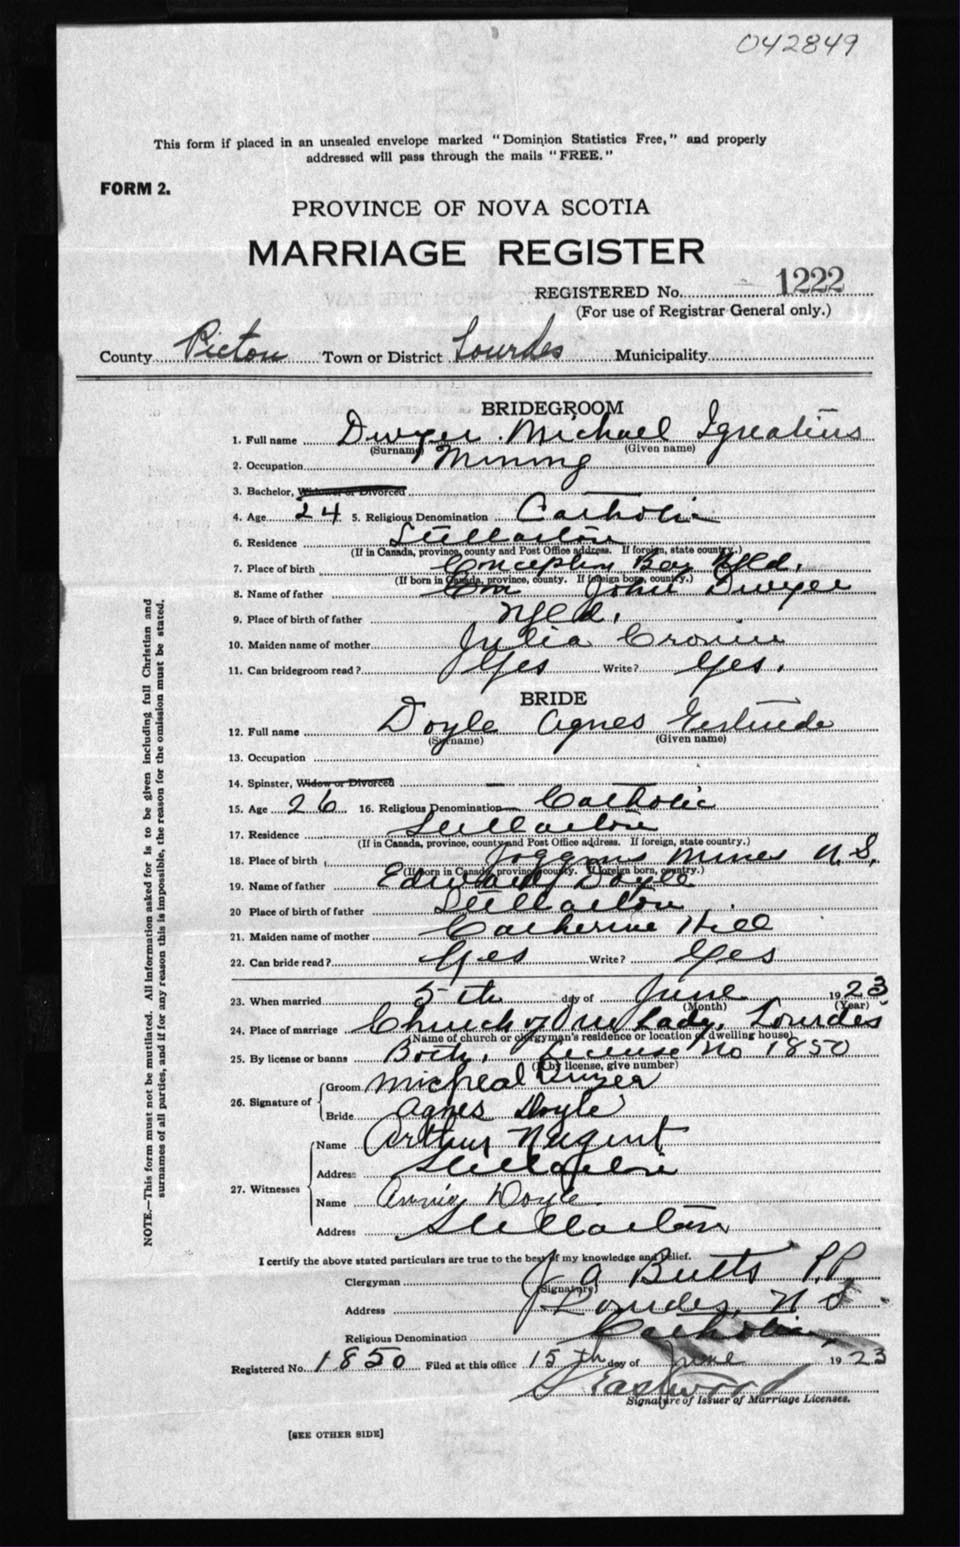 042849
This form if placed in an unsealed envelope marked "Dominion Statistics Free," and properly
addressed will pass through the mails "FREE."
FORM 2.
PROVINCE OF NOVA SCOTIA
MARRIAGE REGISTER
REGISTERED No. 1222
(For use of Registrar General only.)
County Pictou Town or District Lourdes Municipality
BRIDEGROOM
1. Full name Dwyer Michael Ignatius
(Surname) (Given name)
2. Occupation Mining
3. Bachelor, Widower or Divorced
4. Age 24 5. Religious Denomination Catholic
6. Residence Stellarton
(If in Canada, province, county and Post Office address. If foreign, state country.)
7. Place of birth Conception Bay Nfld.
(If born in Canada, province, county. If foreign born, country.)
8. Name of father John Dwyer
9. Place of birth of father Nfld.
10. Maiden name of mother Julia Cronin
11. Can bridegroom read? Yes Write? Yes.
BRIDE
12. Full name Doyle Agnes Gertrude
(Surname) (Given name)
13. Occupation
14. Spinster, Widow or Divorced
15. Age 26 16. Religious Denomination Catholic
17. Residence Stellarton
(If in Canada, province, county and Post Office address. If foreign, state country.)
18. Place of birth Joggins Mines N.S.
(If born in Canada, province, county. If foreign born, country.)
19. Name of father Edward Doyle
20 Place of birth of father Stellarton
21. Maiden name of mother Catherine Hill
22. Can bride read? Yes Write? Yes
23. When married 5th day of June 1923
(Month) (Year)
24. Place of marriage Church of Our Lady, Lourdes
(Name of church or clergyman's residence or location of dwelling house)
25. By license or banns Both. License No 1850
(If by license, give number)
26. Signature of Groom Micheal Dwyer
Bride Agnes Doyle
27. Witnesses Name Arthur Nugent
Address Stellarton
Name Annie Doyle
Address Stellarton
I certify the above stated particulars are true to the best of my knowledge and belief.
Clergyman J A Butts P.P.
(Signature)
Address Lourdes, N S
Religious Denomination Catholic
Registered No. 1850 Filed at this office 15th day of June 1923
Eastwood
Signature of Issuer of Marriage Licenses.
[SEE OTHER SIDE]
NOTE.—This form must not be mutilated. All information asked for is to be given including full Christian and
surnames of all parties, and if for any reason this is impossible, the reason for the omission must be stated.